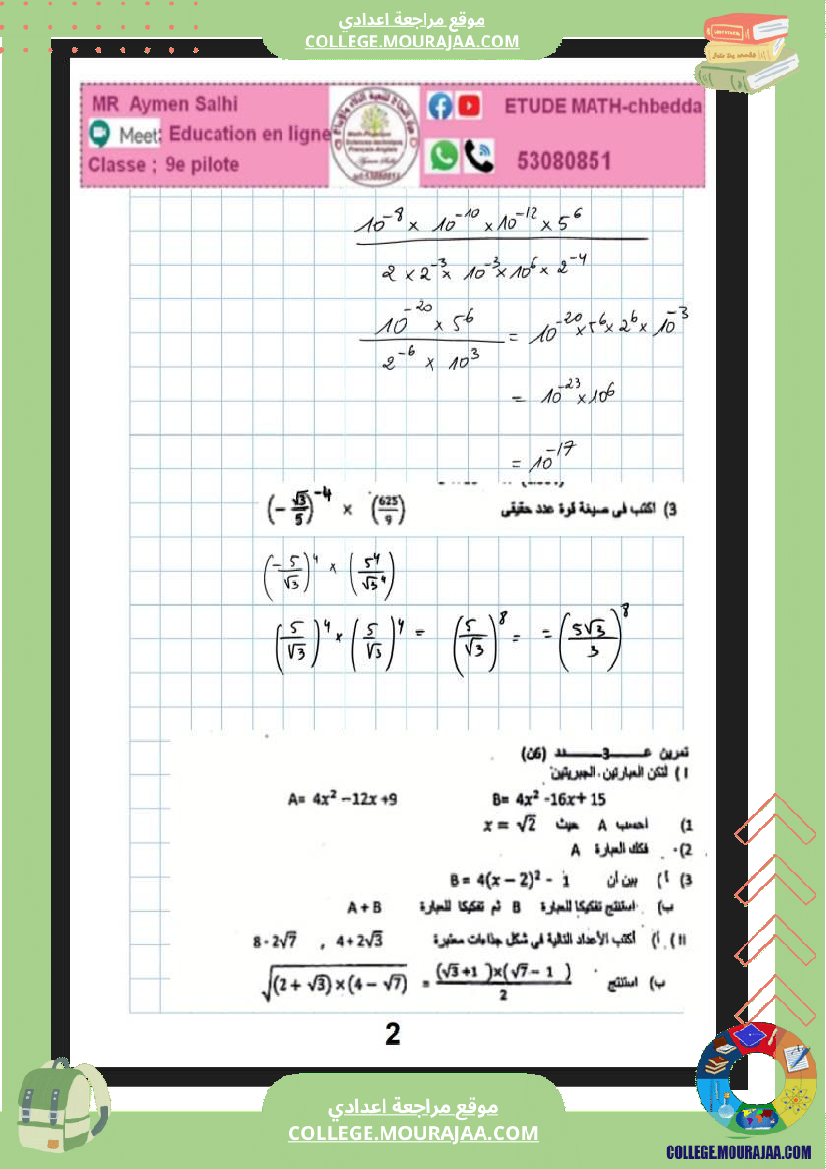 موقع مراجعة اعدادي
COLLEGE.MOURAJAA.COM
MR Aymen Salhi
Meet: Education en ligne
Classe ; 9e pilote
ETUDE MATH-chbedda
53080851
10⁻⁸ × 10⁻¹⁰ × 10⁻¹² × 5⁶
2 × 2⁻³ × 10⁻³ × 10⁶ × 2⁻⁴
10⁻²⁰ × 5⁶ / 2⁻⁶ × 10³ = 10⁻²⁰ × 5⁶ × 2⁶ × 10⁻³
= 10⁻²³ × 10⁶
= 10⁻¹⁷
3) اكتب في صيغة قوة عدد حقيقي (-√3/5)⁻⁴ × (625/9)
(-5/√3)⁴ × (5⁴/√3⁴)
(5/√3)⁴ × (5/√3)⁴ = (5/√3)⁸ = = (5√3/3)⁸
تمرين عـــــ3ـــــدد (6ن)
I) لتكن العبارتين الجبريتين
A= 4x² -12x +9 B= 4x² -16x+ 15
1) أحسب A حيث x = √2
2) فكك العبارة A
3) أ) بين أن B = 4(x - 2)² - 1
ب) استنتج تفكيكا للعبارة B ثم تفكيكا للعبارة A + B
II) أ) أكتب الأعداد التالية في شكل جذاءات معتبرة 4+2√3 , 8-2√7
ب) استنتج √((2 + √3)×(4 - √7)) = (√3+1)×(√7-1)/2
2
موقع مراجعة اعدادي
COLLEGE.MOURAJAA.COM
COLLEGE.MOURAJAA.COM